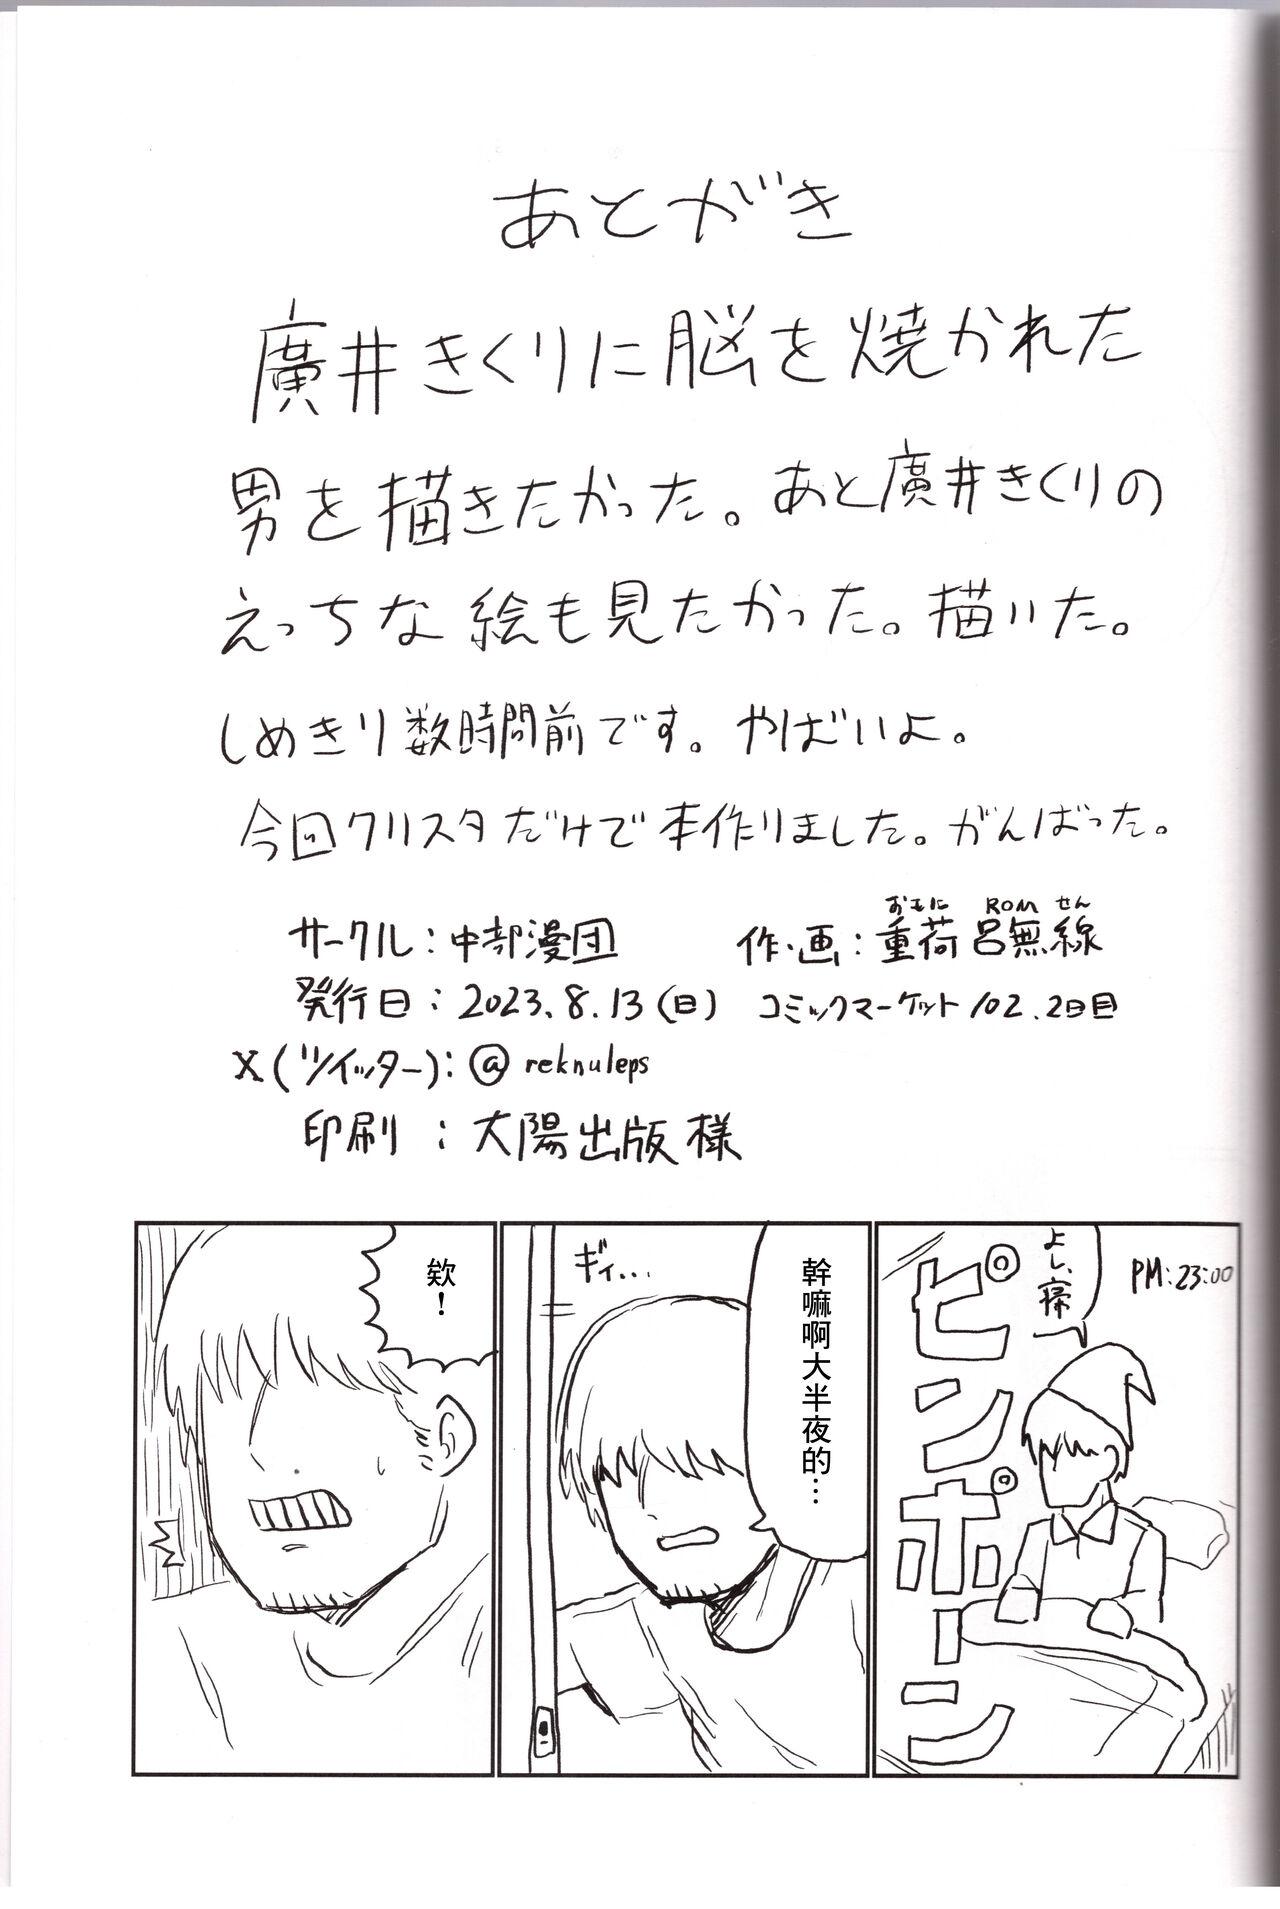 あとがき
廣井きくりに脳を焼かれた
男を描きたかった。あと廣井きくりの
えっちな絵も見たかった。描いた。
しめきり数時間前です。やばいよ。
今回クリスタだけで本作りました。がんばった。
サークル:中部漫団
おもに ROM せん
作・画:重荷呂無線
発行日:2023.8.13(日) コミックマーケット102.2日目
X(ツイッター):@reknuleps
印刷:大陽出版様
PM:23:00
よし、寝
ピンポーン
幹嘛啊大半夜的…
ギィ…
欸!